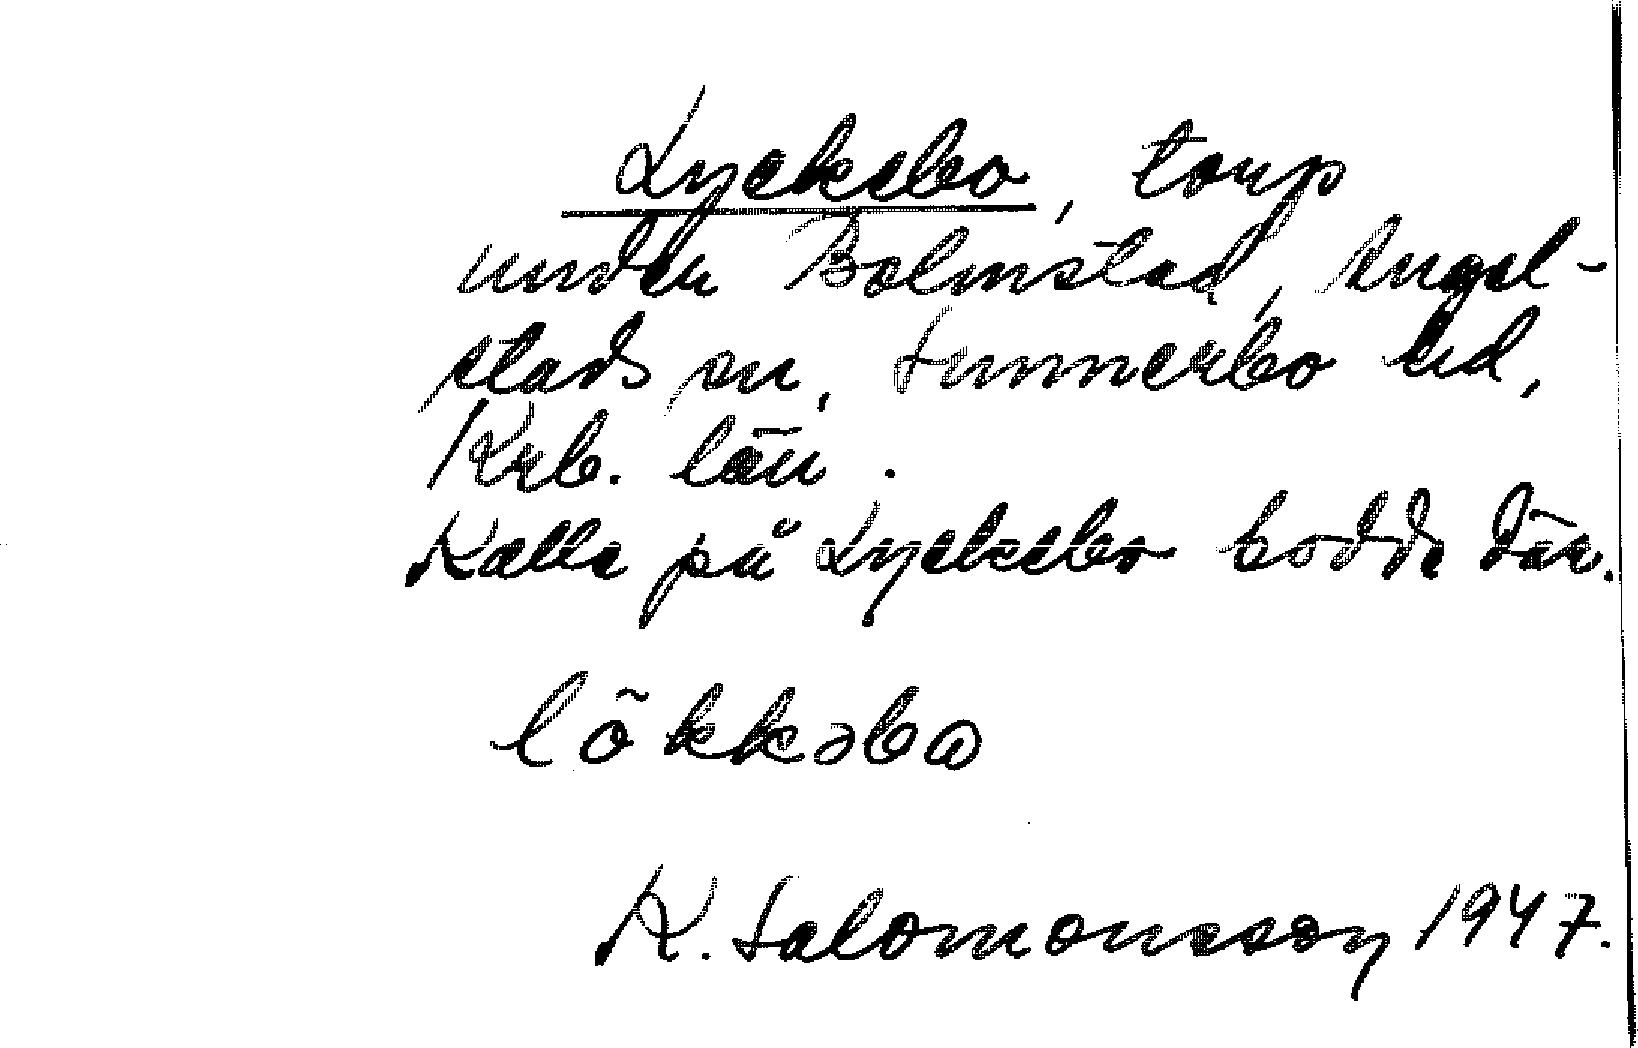 Lyckebo, torp
under Bolmstad, Angel-
stads sn, Sunnerbo hd,
Krb. län.
Kalle på Lyckebo bodde där.
lõkkəbo
K. Salomonsson 1947.